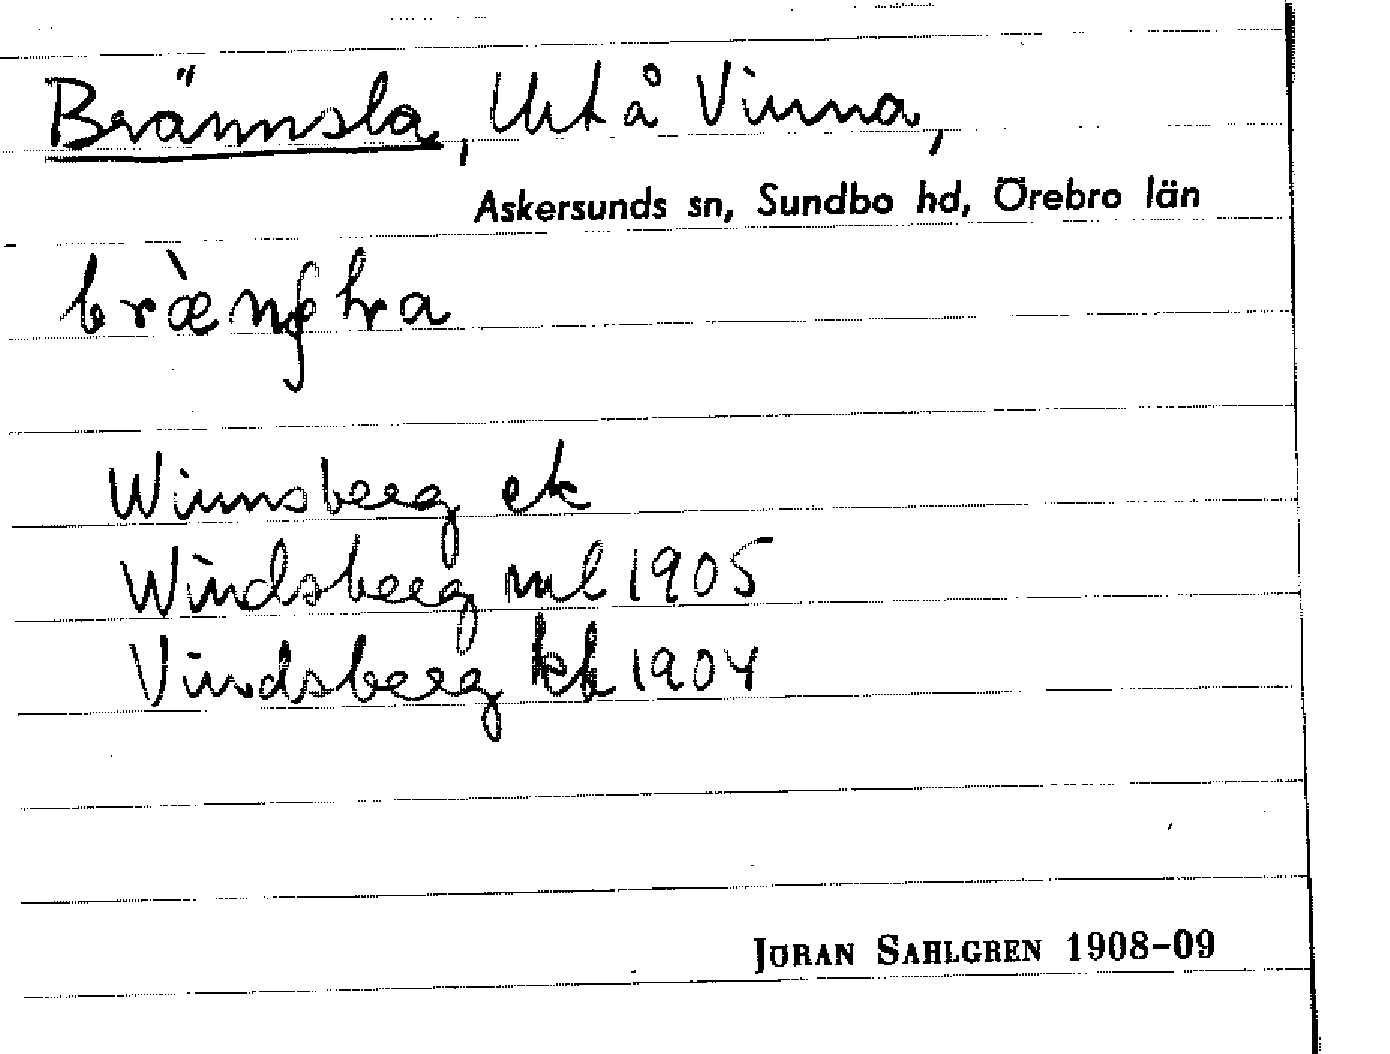 Brännsla, Urt å Vinna,
Askersunds sn, Sundbo hd, Örebro län
Winnsberg ek
Windsberg ml 1905
Vindsberg kk 1904
JÖRAN SAHLGREN 1908-09